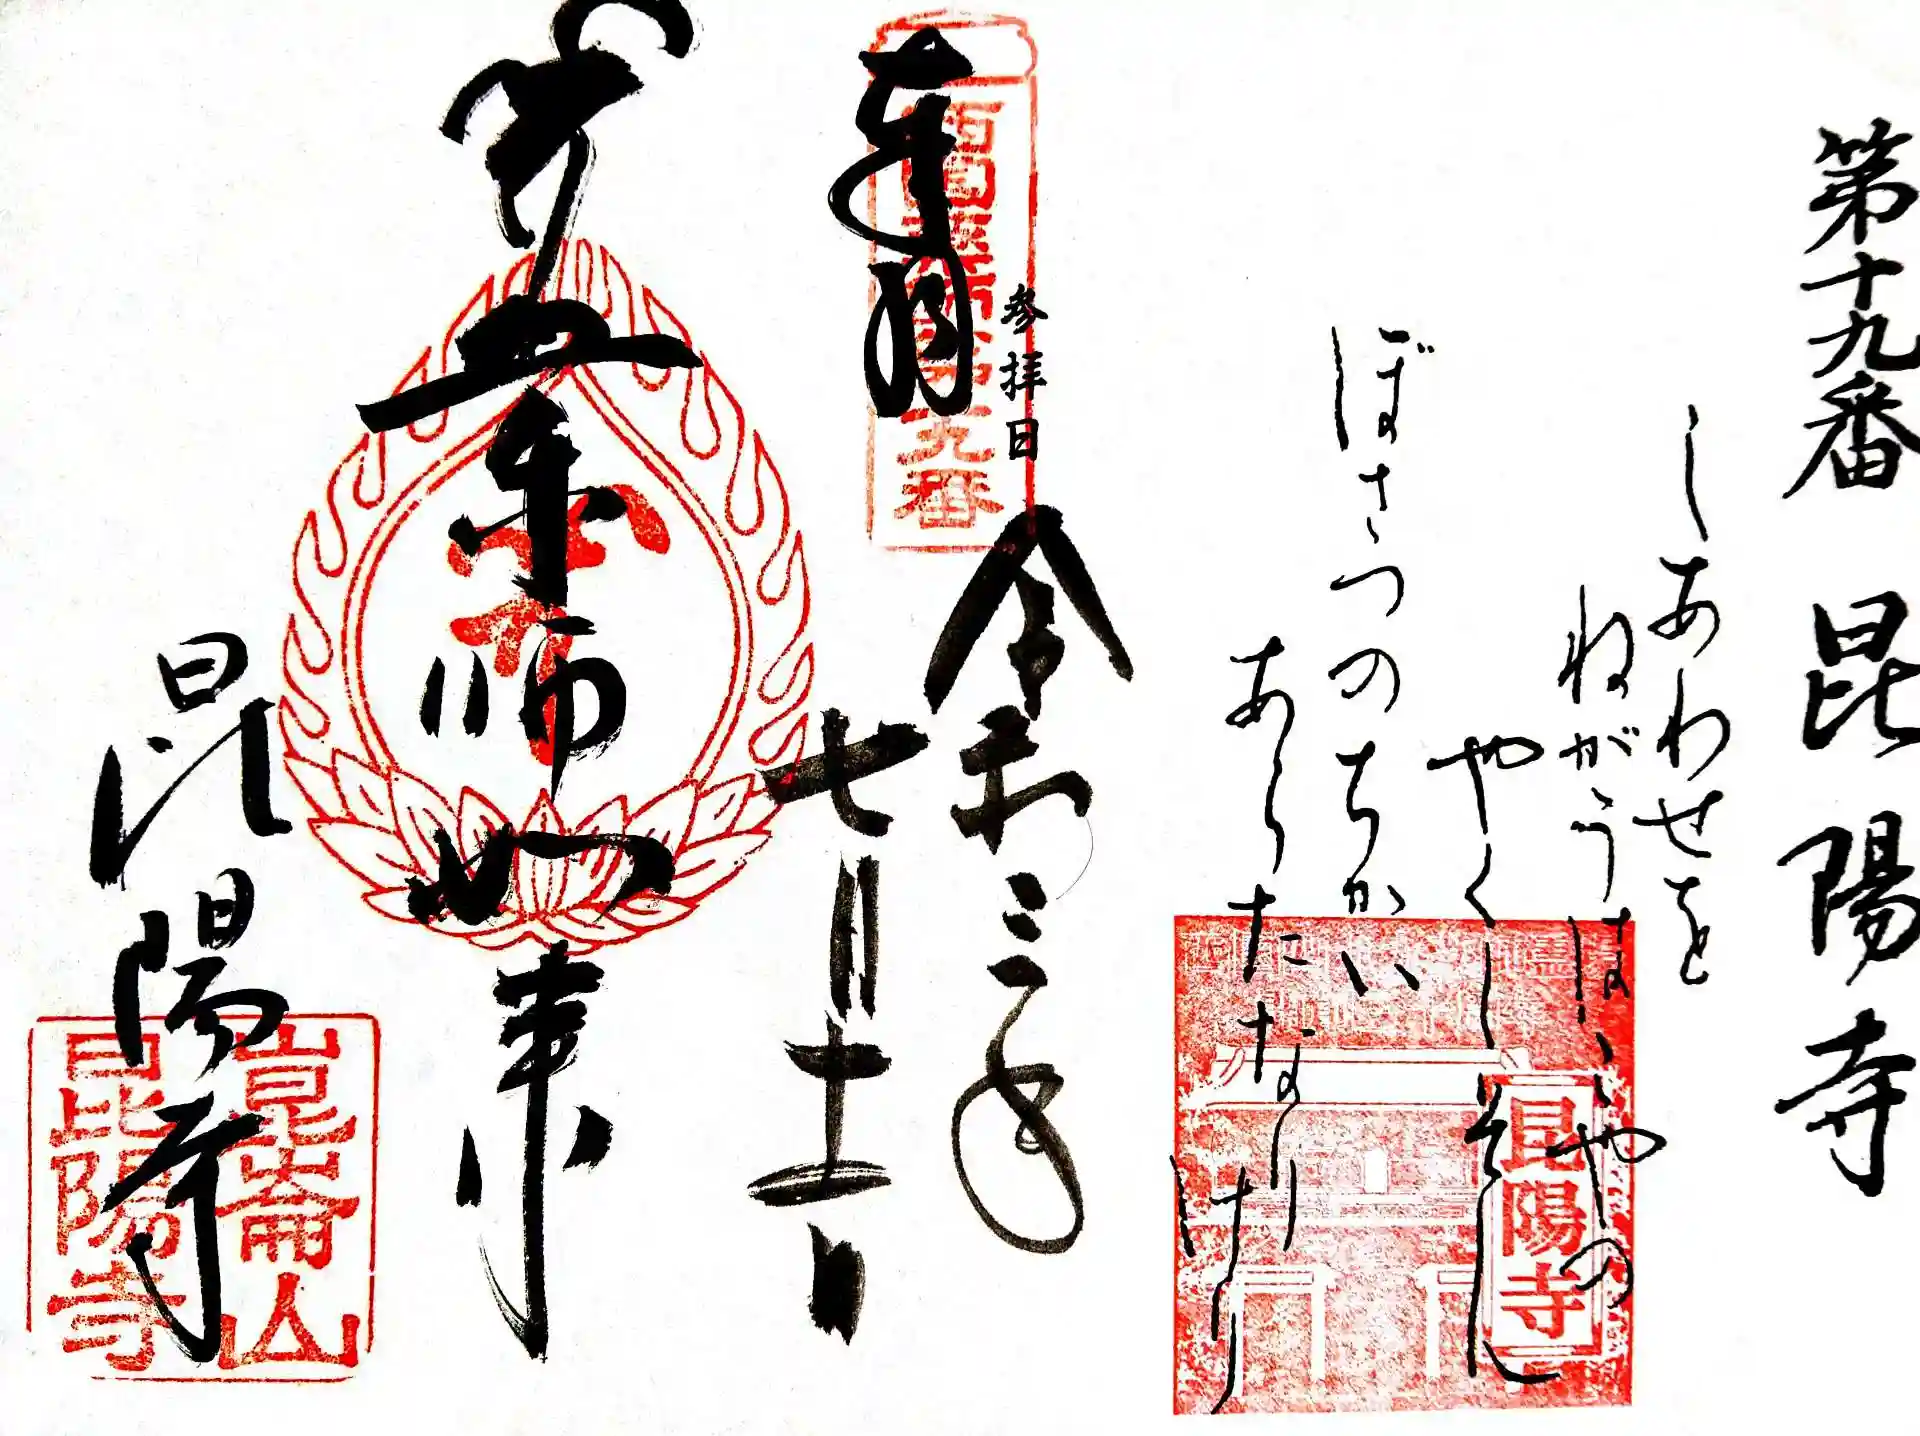 第十九番 昆陽寺
しあわせを
ねがうはこやの
やくしそん
ぼさつのちかい
あらたなりけり
昆陽寺
参拝日
令和三年
七月十一日
奉拝
西国薬師第十九番
薬師如来
昆陽寺
崑崙山
昆陽寺